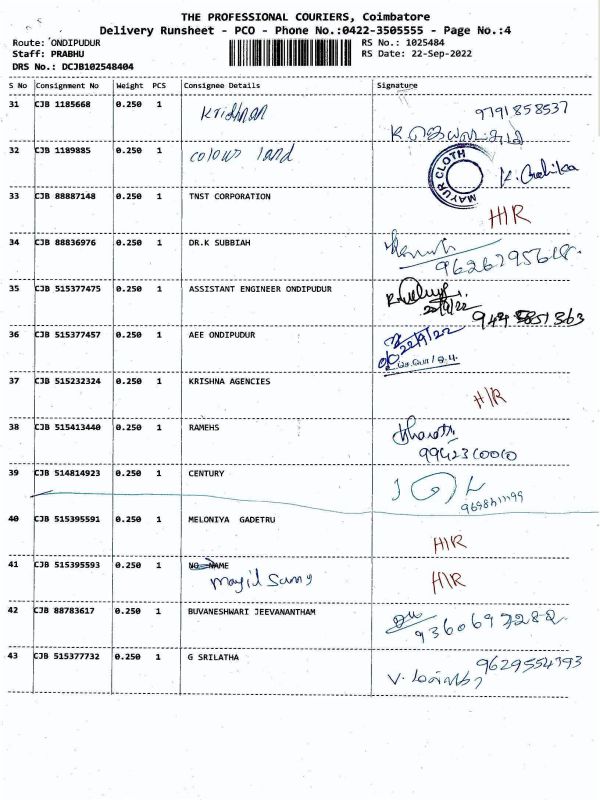 THE PROFESSIONAL COURIERS, Coimbatore
Delivery Runsheet - PCO - Phone No.:0422-3505555 - Page No.:4
Route: ONDIPUDUR RS No.: 1025484
Staff: PRABHU RS Date: 22-Sep-2022
DRS No.: DCJB102548404
S No Consignment No Weight PCS Consignee Details Signature
31 CJB 1185668 0.250 1 Krishnan 9791858537
32 CJB 1189885 0.250 1 colours land MAYUR CLOTH
33 CJB 88887148 0.250 1 TNST CORPORATION H/R
34 CJB 88836976 0.250 1 DR.K SUBBIAH
35 CJB 515377475 0.250 1 ASSISTANT ENGINEER ONDIPUDUR
36 CJB 515377457 0.250 1 AEE ONDIPUDUR 22/9/22
37 CJB 515232324 0.250 1 KRISHNA AGENCIES H/R
38 CJB 515413440 0.250 1 RAMEHS Bharath
9942310010
39 CJB 514814923 0.250 1 CENTURY
40 CJB 515395591 0.250 1 MELONIYA GADETRU H/R
41 CJB 515395593 0.250 1 NO NAME H/R
Mayil Samy
42 CJB 88783617 0.250 1 BUVANESHWARI JEEVANANTHAM
9360697282
43 CJB 515377732 0.250 1 G SRILATHA 9629554793